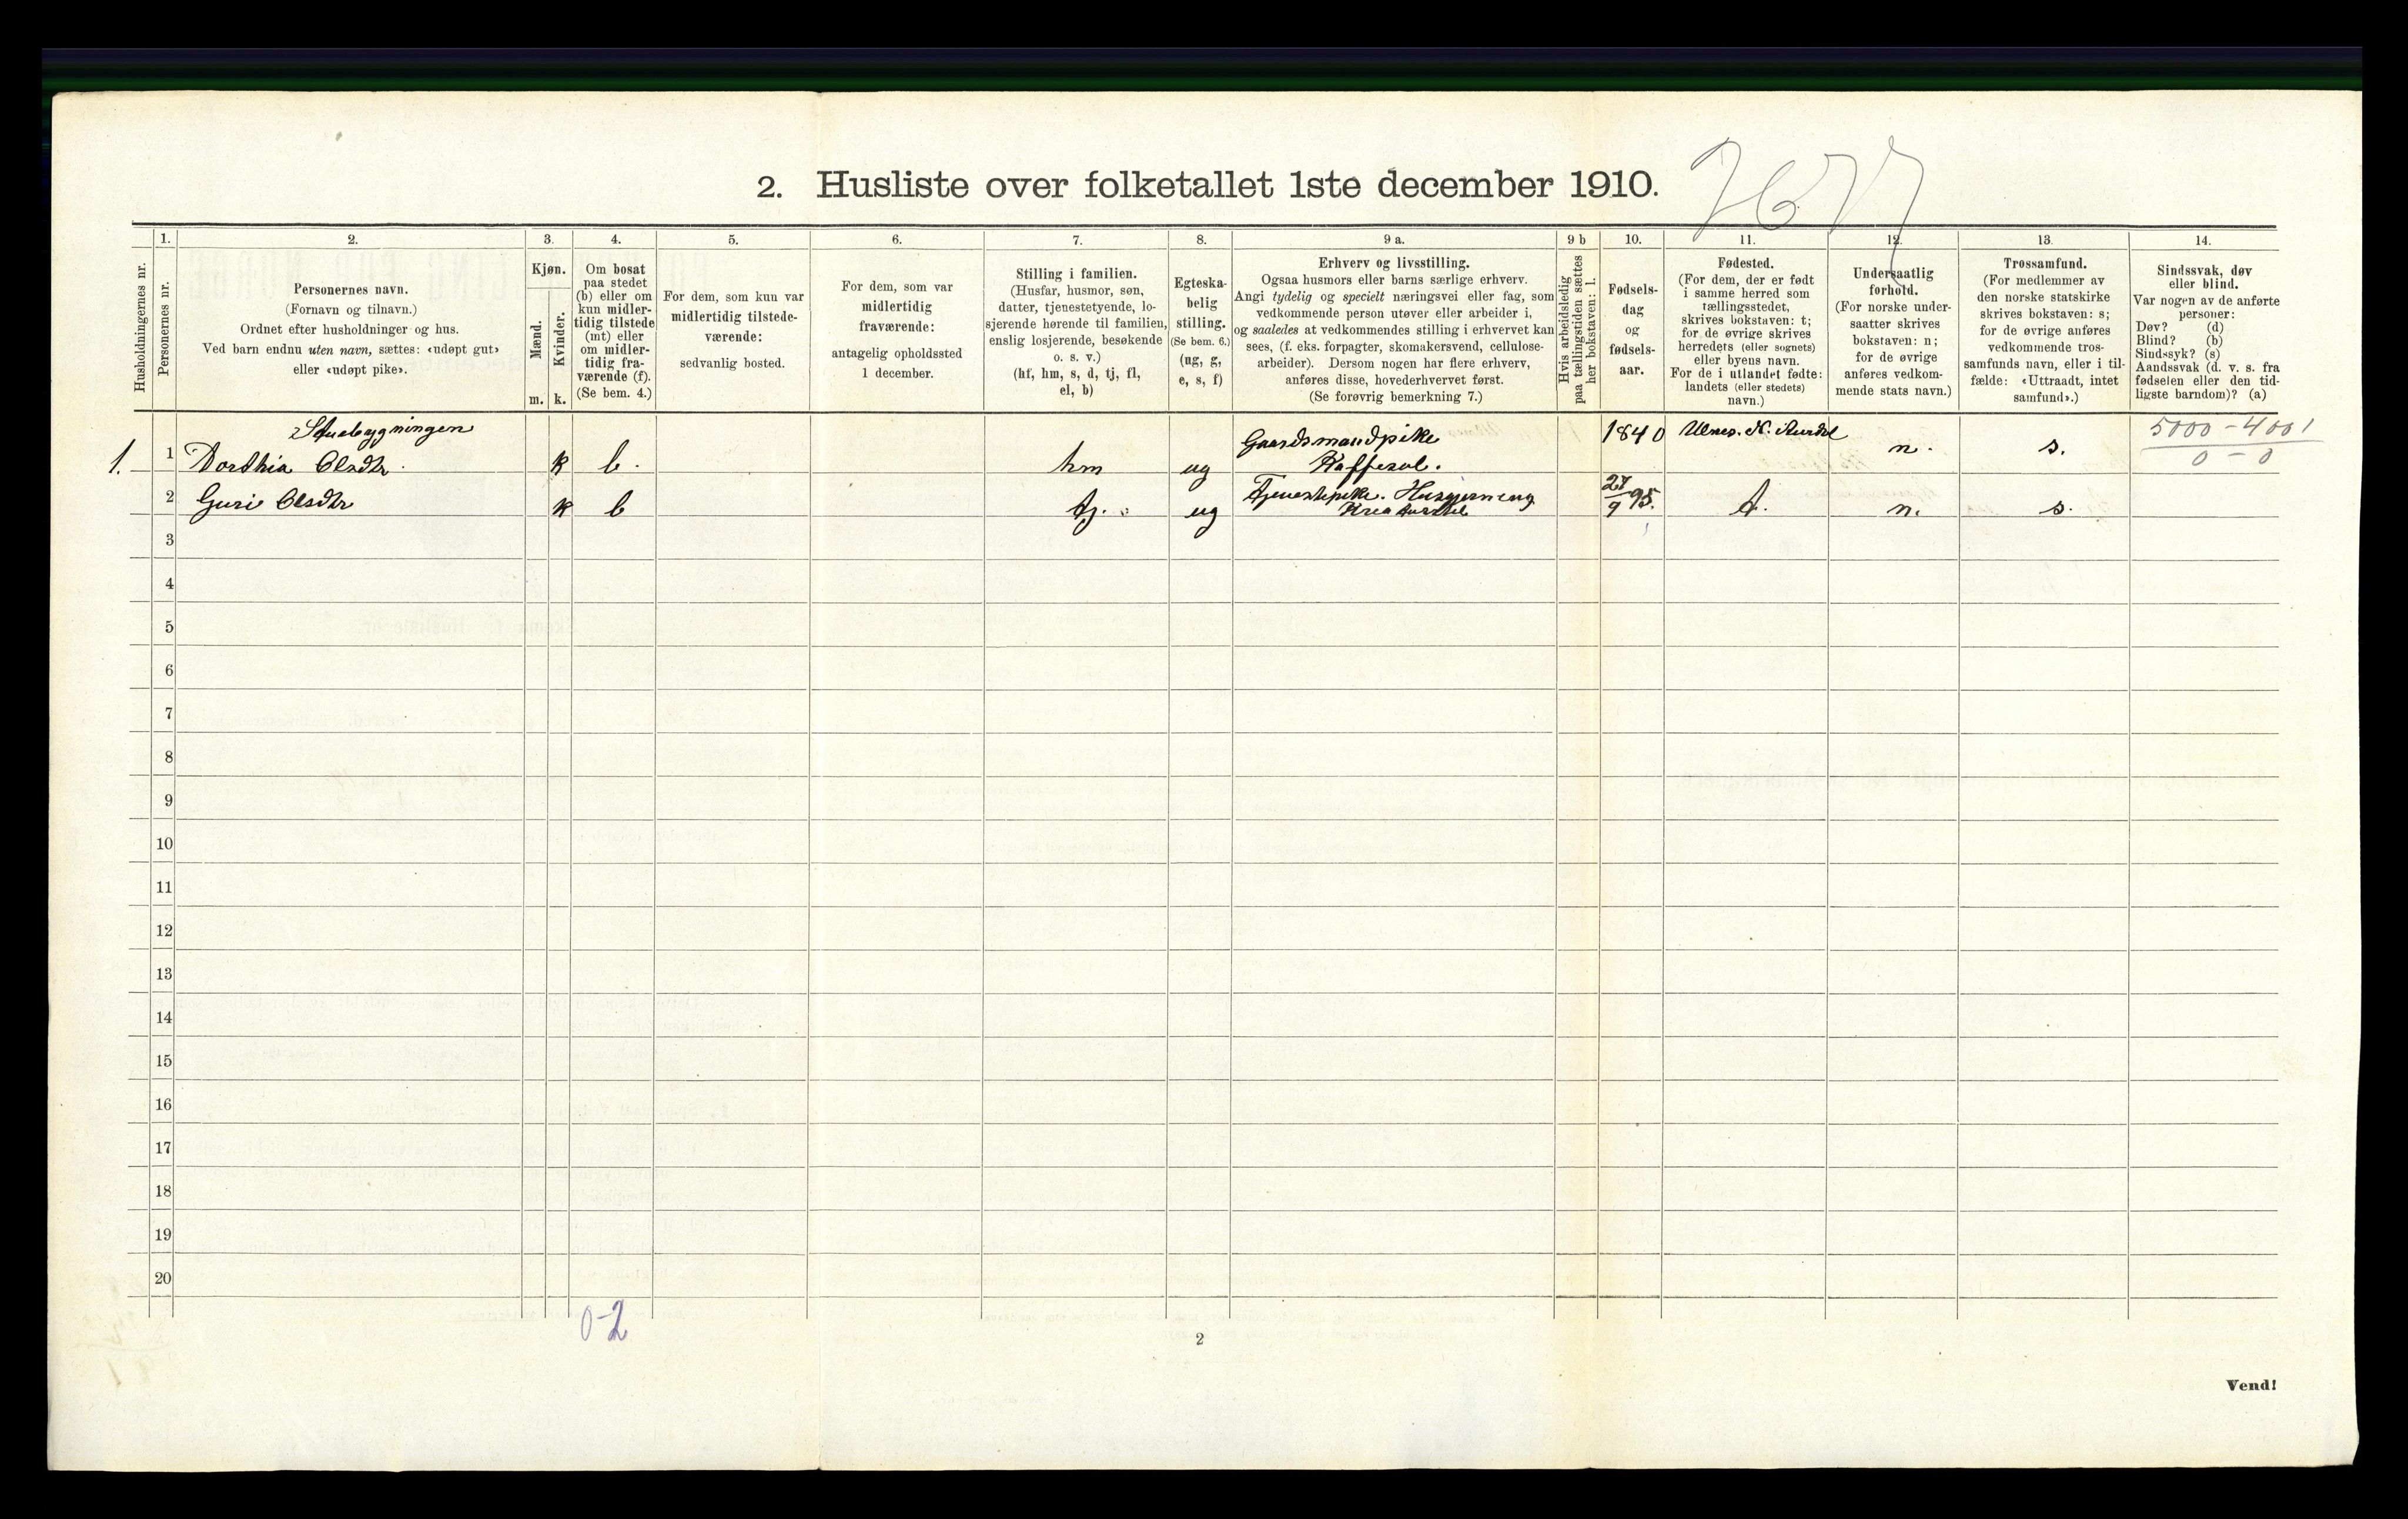 2. Husliste over folketallet 1ste december 1910.
7677
1. 2. 3. 4. 5. 6. 7. 8. 9 a. 9 b 10. 11. 12. 13. 14.
Husholdningernes nr.
Personernes nr.
Personernes navn.
(Fornavn og tilnavn.)
Ordnet efter husholdninger og hus.
Ved barn endnu uten navn, sættes: «udøpt gut»
eller «udøpt pike».
Kjøn.
Mænd.
Kvinder.
m. k.
Om bosat
paa stedet
(b) eller om
kun midler-
tidig tilstede
(mt) eller
om midler-
tidig fra-
værende (f).
(Se bem. 4.)
For dem, som kun var
midlertidig tilstede-
værende:
sedvanlig bosted.
For dem, som var
midlertidig
fraværende:
antagelig opholdssted
1 december.
Stilling i familien.
(Husfar, husmor, søn,
datter, tjenestetyende, lo-
sjerende hørende til familien,
enslig losjerende, besøkende
o. s. v.)
(hf, hm, s, d, tj, fl,
el, b)
Egteska-
belig
stilling.
(Se bem. 6.)
(ug, g,
e, s, f)
Erhverv og livsstilling.
Ogsaa husmors eller barns særlige erhverv.
Angi tydelig og specielt næringsvei eller fag, som
vedkommende person utøver eller arbeider i,
og saaledes at vedkommendes stilling i erhvervet kan
sees, (f. eks. forpagter, skomakersvend, cellulose-
arbeider). Dersom nogen har flere erhverv,
anføres disse, hovederhvervet først.
(Se forøvrig bemerkning 7.)
Hvis arbeidsledig
paa tællingstiden sættes
her bokstaven: l.
Fødsels-
dag
og
fødsels-
aar.
Fødested.
(For dem, der er født
i samme herred som
tællingsstedet,
skrives bokstaven: t;
for de øvrige skrives
herredets (eller sognets)
eller byens navn.
For de i utlandet fødte:
landets (eller stedets)
navn.)
Undersaatlig
forhold.
(For norske under-
saatter skrives
bokstaven: n;
for de øvrige
anføres vedkom-
mende stats navn.)
Trossamfund.
(For medlemmer av
den norske statskirke
skrives bokstaven: s;
for de øvrige anføres
vedkommende tros-
samfunds navn, eller i til-
fælde: «Uttraadt, intet
samfund».)
Sindssvak, døv
eller blind.
Var nogen av de anførte
personer:
Døv? (d)
Blind? (b)
Sindssyk? (s)
Aandssvak (d. v. s. fra
fødselen eller den tid-
ligste barndom)? (a)
Stuebygningen
Gaardsmandpike 1840 Ulnes. N. Aurdal 5000-4001
1. 1 Dorthia Olsdtr. k b. hm ug n. s. 0-0
2 Guri Olsdtr k b tj. ug Tjenestepike. Husgjerning 27/9 95. t. n. s.
Kreaturstel
3
4
5
6
7
8
9
10
11
12
13
14
15
16
17
18
19
20
0-2
2
Vend!